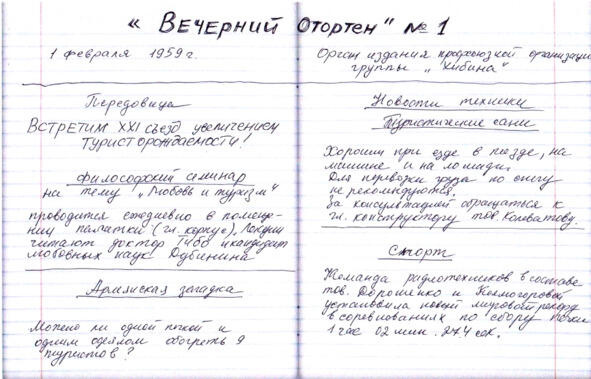 „Вечерний Отортен" № 1
1 февраля 1959 г.
Орган издания профсоюзной организации
группы „Хибина"
Передовица
Встретим XXI съезд увеличением
туристорождаемости!
Философский семинар
на тему „Любовь и туризм"
проводится ежедневно в помеще-
нии палатки (гл. корпус). Лекции
читают доктор Тибо и кандидат
любовных наук Дубинина
Армянская загадка
Можно ли одной печкой и
одним одеялом обогреть 9
туристов?
Новости техники
Туристические сани
Хороши при езде в поезде, на
машине и на лошади.
Для перевозки груза по снегу
не рекомендуются.
За консультацией обращаться к
гл. конструктору тов. Колеватову.
Спорт
Команда радиотехников в составе
тов. Дорошенко и Колмогоровой
установила новый мировой рекорд
в соревнованиях по сбору печки
1 час 02 мин. 27.4 сек.